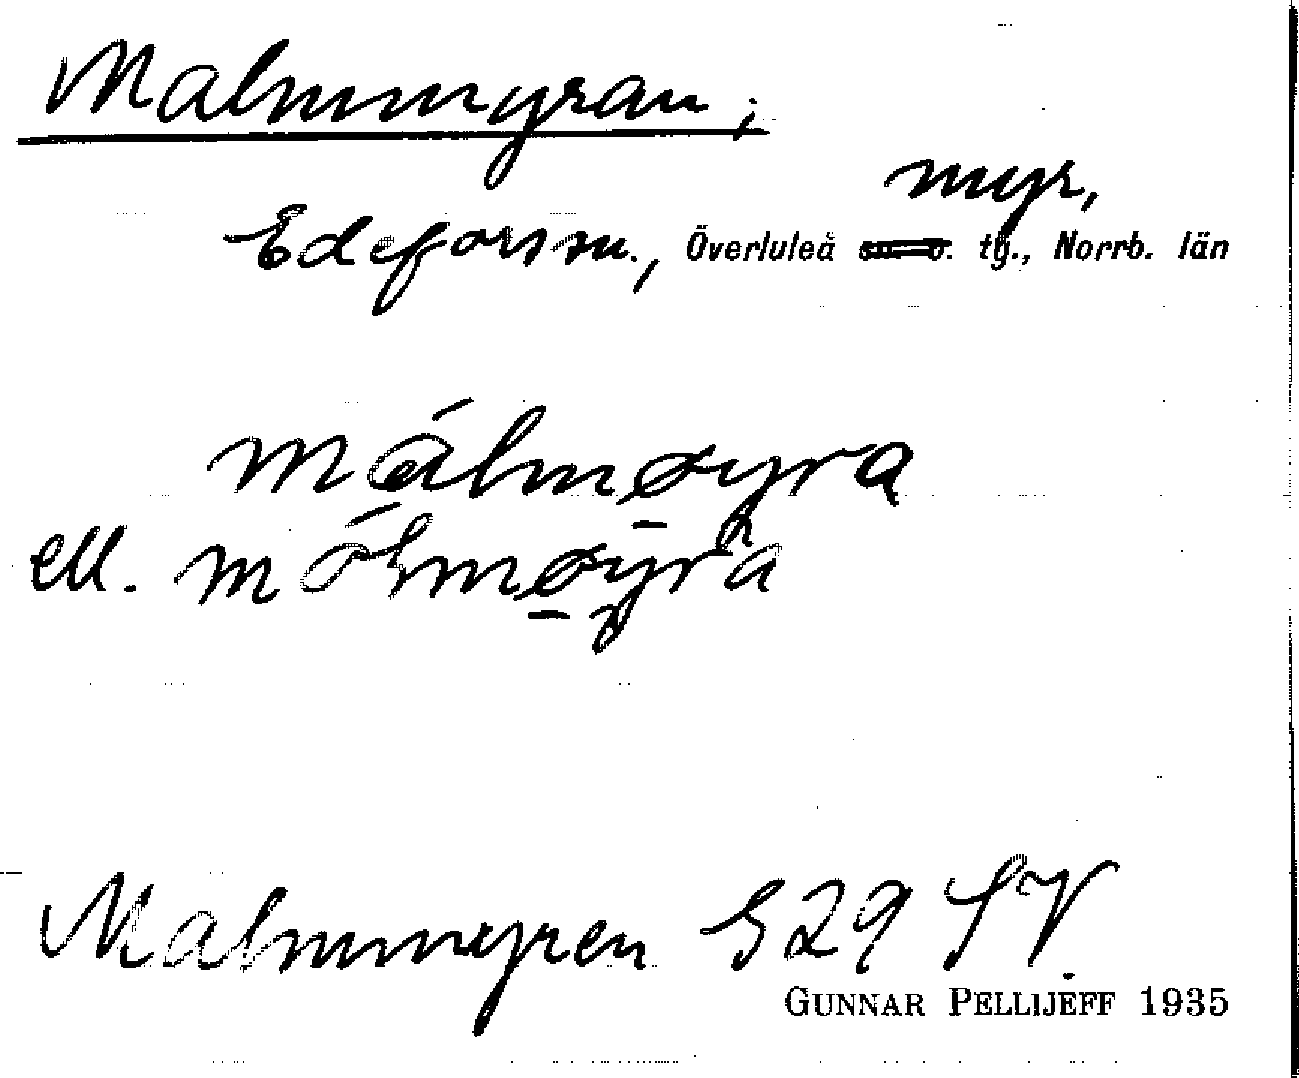 Malmmyran;
myr,
Edefors sn., Överluleå tg., Norrb. län
málmøyra
ell. mólmøyra
Malmmyren S29 SV
GUNNAR PELLIJEFF 1935